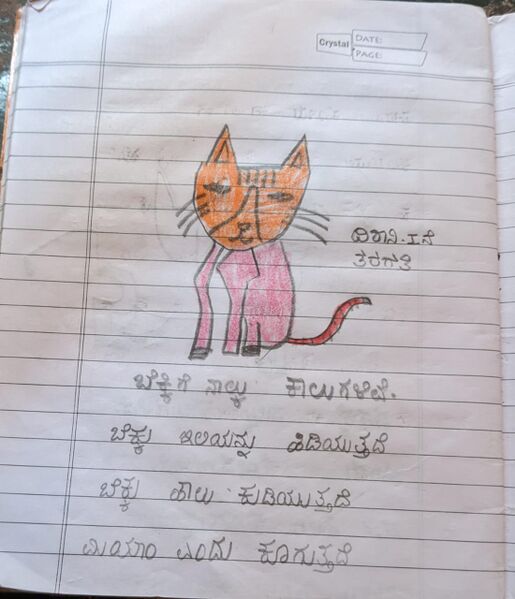 Crystal
DATE:
PAGE:
ವಿರಾವಿ.I ನೆ
ತರಗತಿ
ಬೆಕ್ಕಿಗೆ ನಾಲ್ಕು ಕಾಲುಗಳಿವೆ.
ಬೆಕ್ಕು ಇಲಿಯನ್ನು ಹಿಡಿಯುತ್ತದೆ
ಬೆಕ್ಕು ಹಾಲು ಕುಡಿಯುತ್ತದೆ
ಮಿಯಾಂ ಎಂದು ಕೂಗುತ್ತದೆ